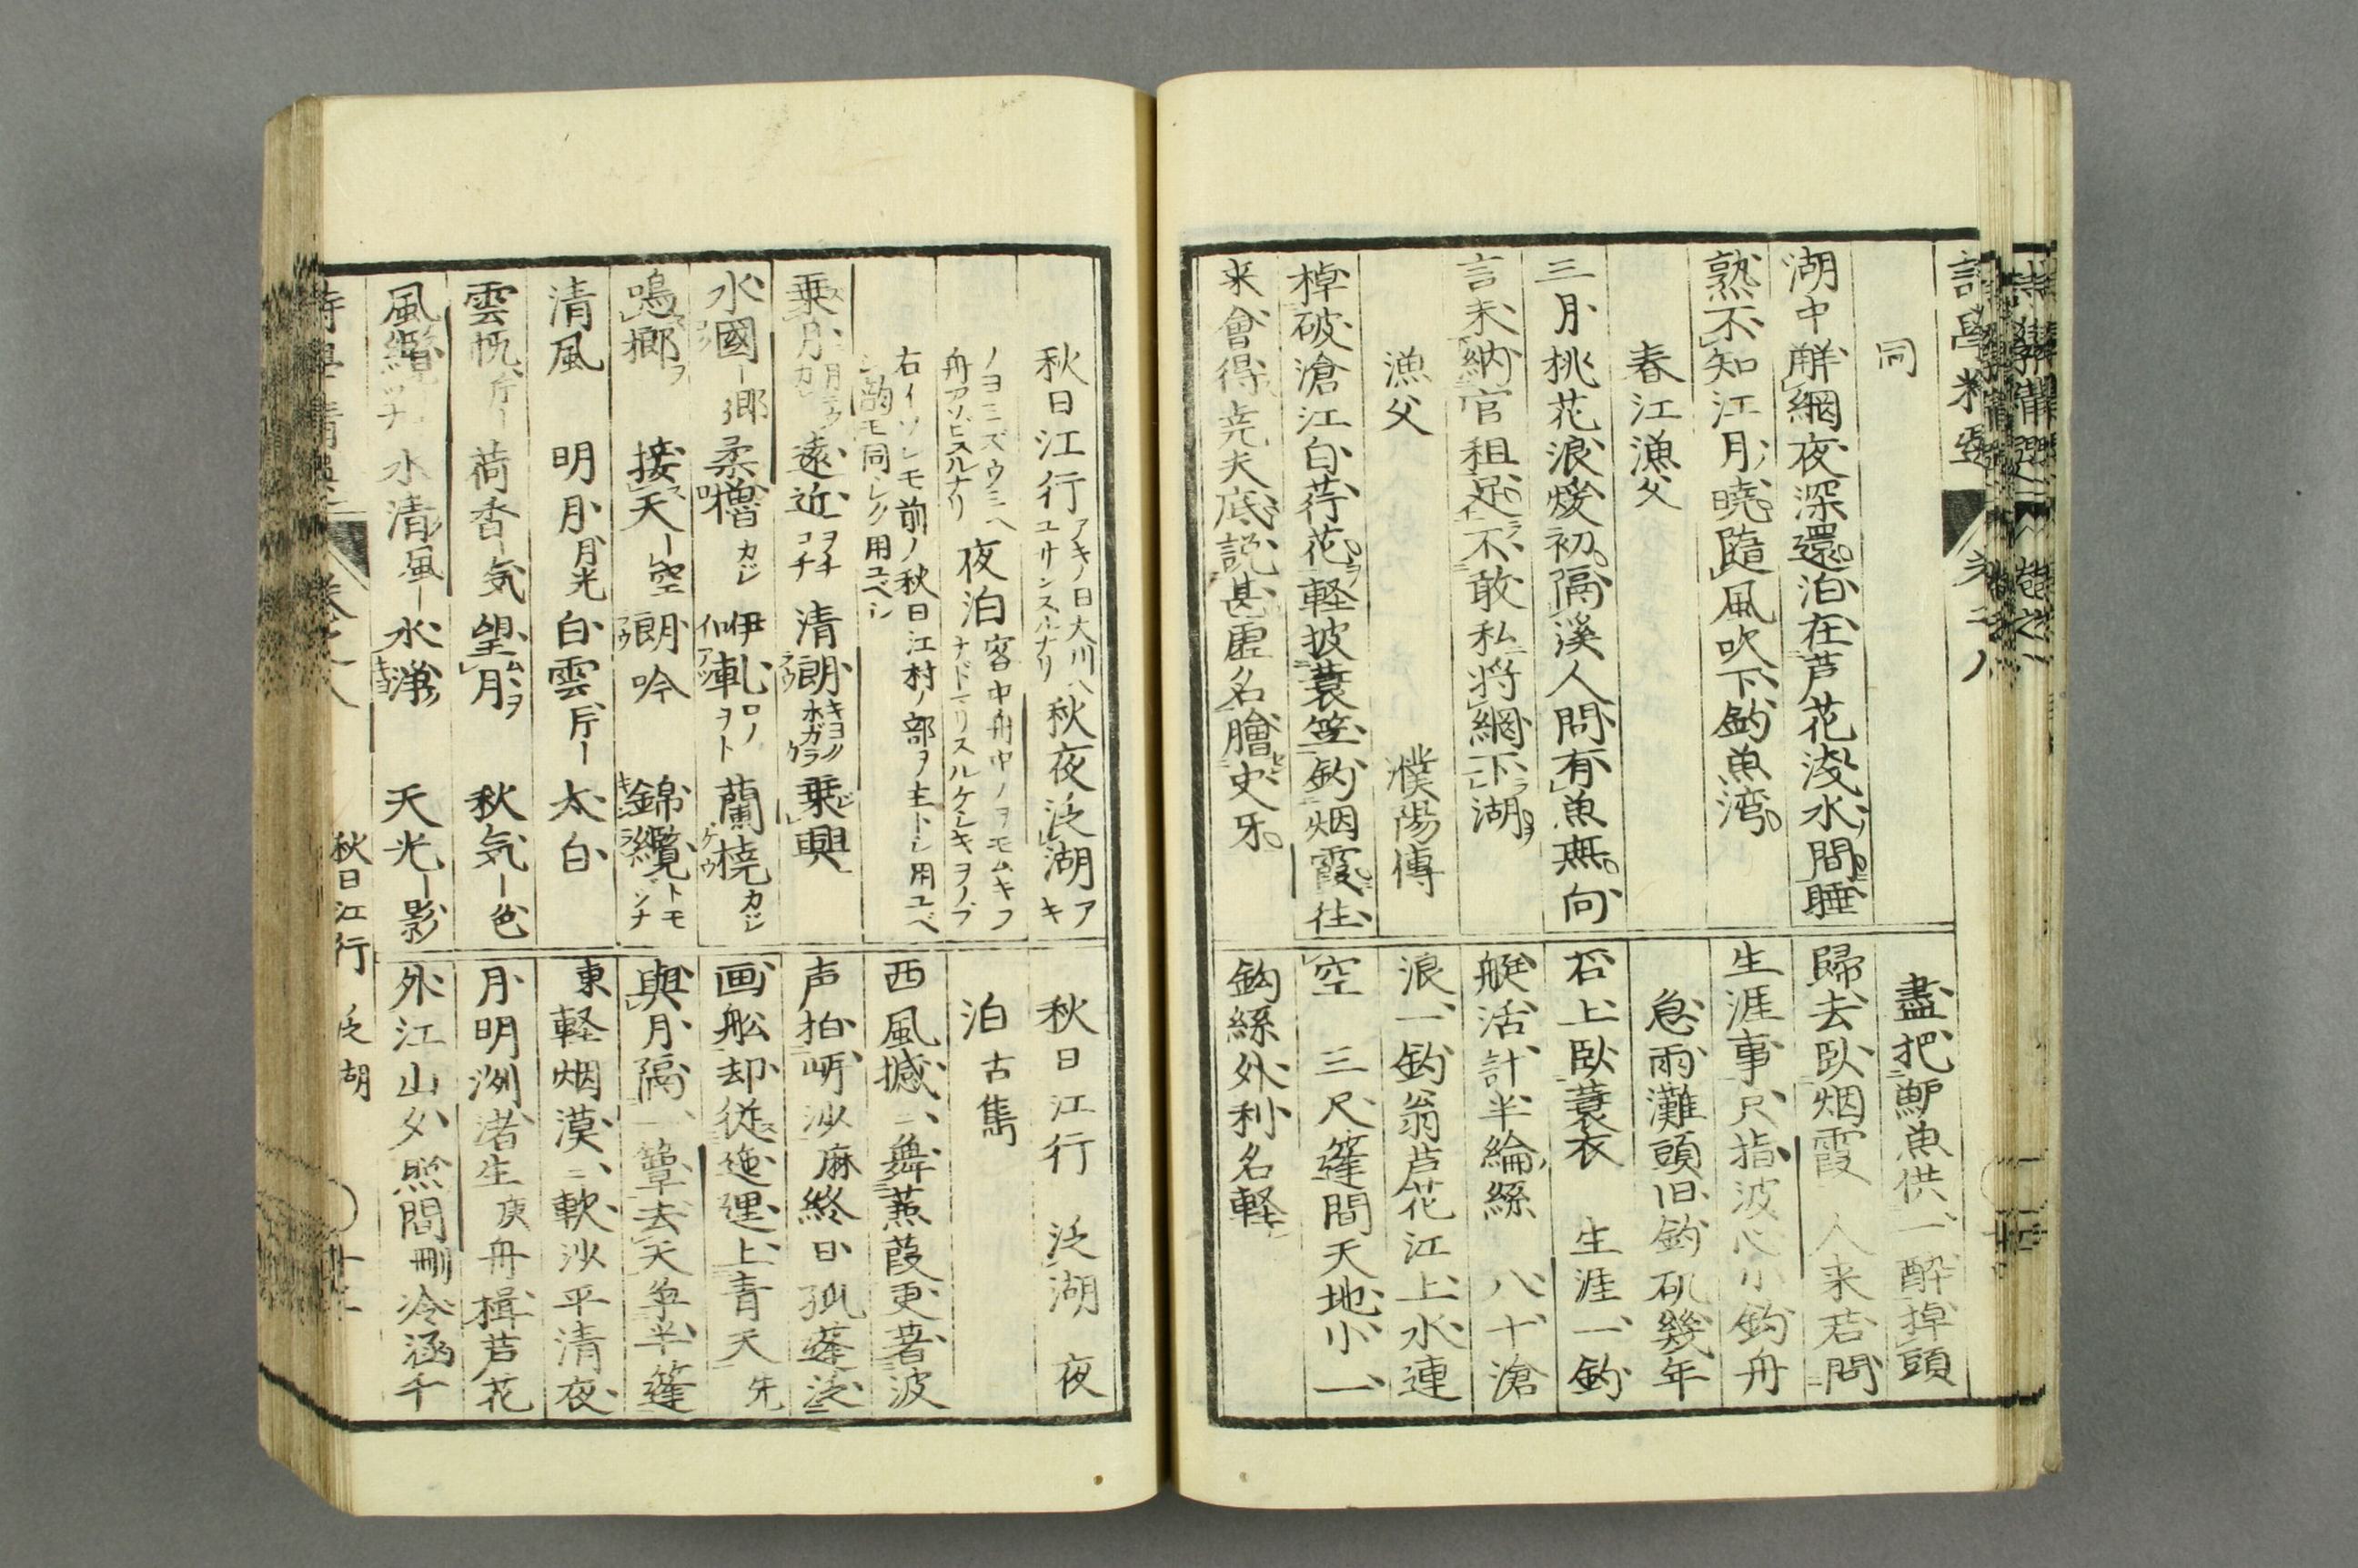 同
湖中觧網夜深還泊在芦花浅水間睡
熟不知江月暁隨風吹下釣魚湾
春江漁父
三月桃花浪煖初隔溪人問有魚無向
言未納官租足不敢私将網下湖
漁父 濮陽傳
棹破滄江白荇花軽披蓑笠釣烟霞往
来會得尭夫底説甚虚名膾史牙
盡把鱸魚供一酔掉頭
歸去臥烟霞 人来若問
生涯事尺指波心小釣舟
急雨灘頭旧釣矶幾年
石上臥蓑衣 生涯一釣
艇活計半綸絲 八十滄
浪一釣翁芦花江上水連
空 三尺篷間天地小一
鈎絲外利名軽
秋日江行 アキノ日大川ヘユサンスルナリ 秋夜泛湖 アキ
ノヨミズウミヘ舟アソビスルナリ 夜泊 客中舟中ノヲモムキフナドマリスルケシキヲノブ
右イツレモ前ノ秋日江村ノ部ヲ主トシ用ユベ
シ韵モ同シク用ユベシ
乗月 遠近 ヲチコチ 清朗 乗興
水國 ―郷 柔櫓 カジ 咿軋 ロノヲト 蘭橈 カジ
鳴榔 接天 ―空 朗吟 錦纜 トモヅナ
清風 明月 月光 白雲 片― 太白
雲帆 片― 荷香 ―気 望月 秋気 ―色
風纜 水清 風― 水浄 天光 ―影
秋日江行 泛湖 夜
泊 古雋
西風撼二舞蒹葭更著波
声拍岍沙 麻 終日孤蓬泛
画舩却従迤逦上青天 先
與月隔一簟去天争半篷
東 軽烟漠二軟沙平清夜
月明洲渚生 庚 舟楫芦花
外江山夕照間 刪 冷涵千
秋日江行 泛湖